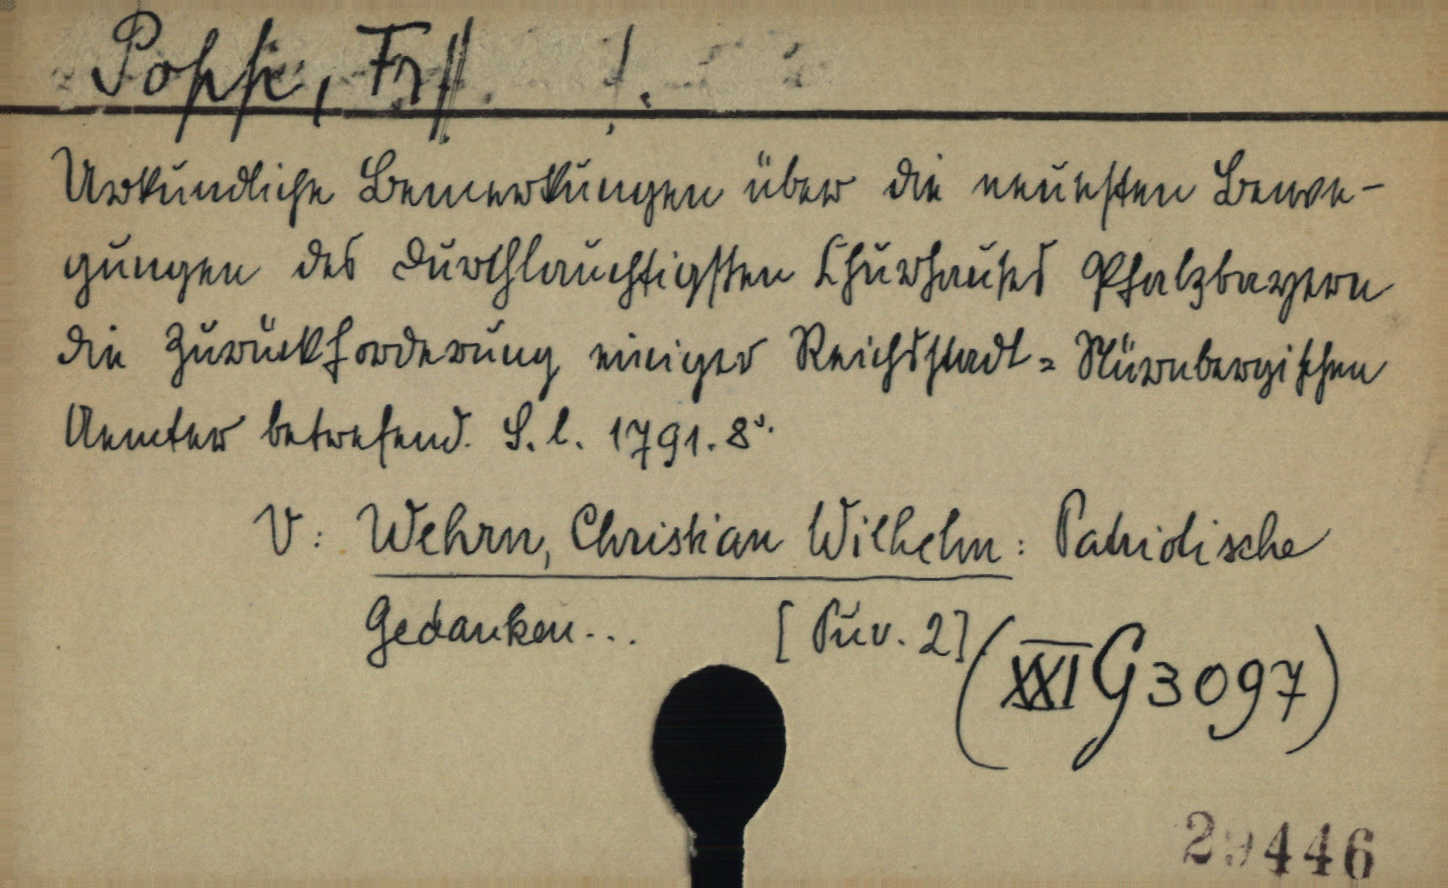 Poppe, Fr.
Urkundliche Bemerkungen über die neuesten Bewe-
gungen des durchlauchtigsten Churhauses Pfalzbayern
die Zurückforderung einiger Reichsstadt=Nürnbergischen
Aemter betrefend. S. l. 1791. 8°.
V: Wehrn, Christian Wilhelm: Patriotische
Gedanken... [Püv. 2]
(XXI G 3097)
29446